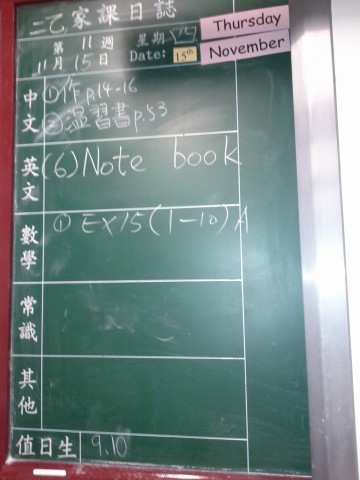 二乙家課日誌
Thursday
第11週 星期四
November
11月15日 Date: 15th
中文 ①作P.14-16
②温習書p.53
英文 (6)Note book
數學 ① EX15(1-10)A
常識
其他
值日生 9.10